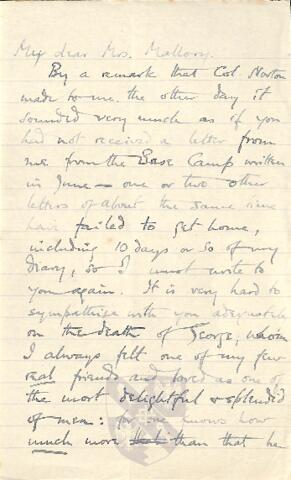 My dear Mrs. Mallory.
By a remark that Col. Norton
made to me the other day it
sounded very much as if you
had not received a letter from
me from the Base Camp written
in June — one or two other
letters of about the same time
have failed to get home,
including 10 days or so of my
diary, so I must write to
you again. It is very hard to
sympathise with you adequately
on the death of George, whom
I always felt one of my few
real friends and loved as one of
the most delightful & splendid
of men: for one knows how
much more than that he